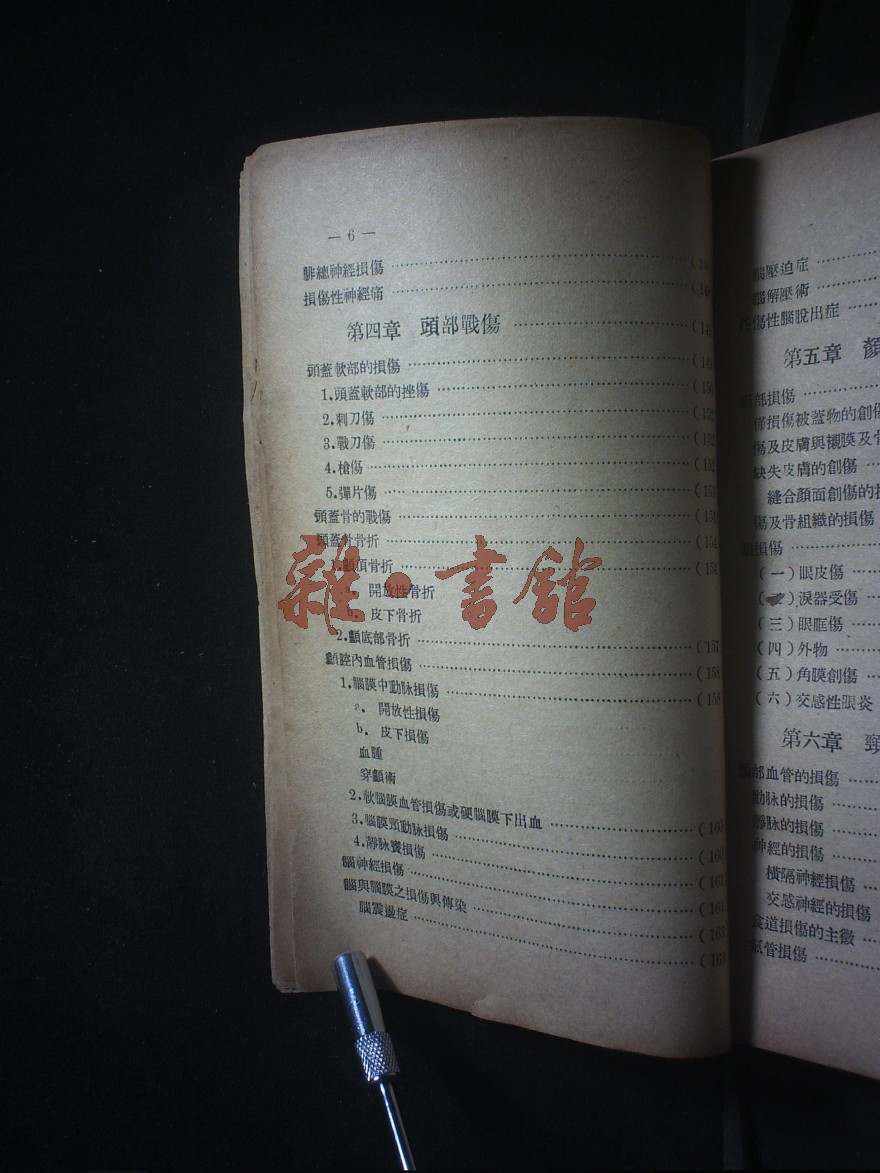 — 6 —
腓總神經損傷
損傷性神經痛
第四章 頭部戰傷
頭蓋軟部的損傷
1.頭蓋軟部的挫傷 (150
2.刺刀傷 (152
3.戰刀傷 (152
4.槍傷 (152
5.彈片傷
頭蓋骨的戰傷 (154
頭蓋骨骨折 (154
顱頂骨折 (154
a. 開放性骨折
b. 皮下骨折
2.顱底部骨折 (157
顱腔內血管損傷 (158
1.腦膜中動脉損傷 (158
a. 開放性損傷
b. 皮下損傷
血腫
穿顱術
2.軟腦膜血管損傷或硬腦膜下出血 (160
3.腦膜頸動脉損傷 (160
4.靜脉竇損傷 (161
腦神經損傷 (161
腦與腦膜之損傷與傳染 (163
腦震盪症 (163
雜·書館
壓迫症
解壓術
傷性腦脫出症
第五章
部損傷
僅損傷被蓋物的創傷
傷及皮膚與襯膜及骨
缺失皮膚的創傷
縫合顏面創傷的
傷及骨組織的損傷
損傷
(一)眼皮傷
(二)淚器受傷
(三)眼眶傷
(四)外物
(五)角膜創傷
(六)交感性眼炎
第六章 頸
部血管的損傷
動脉的損傷
靜脉的損傷
神經的損傷
橫隔神經損傷
交感神經的損傷
食道損傷的主徵
氣管損傷